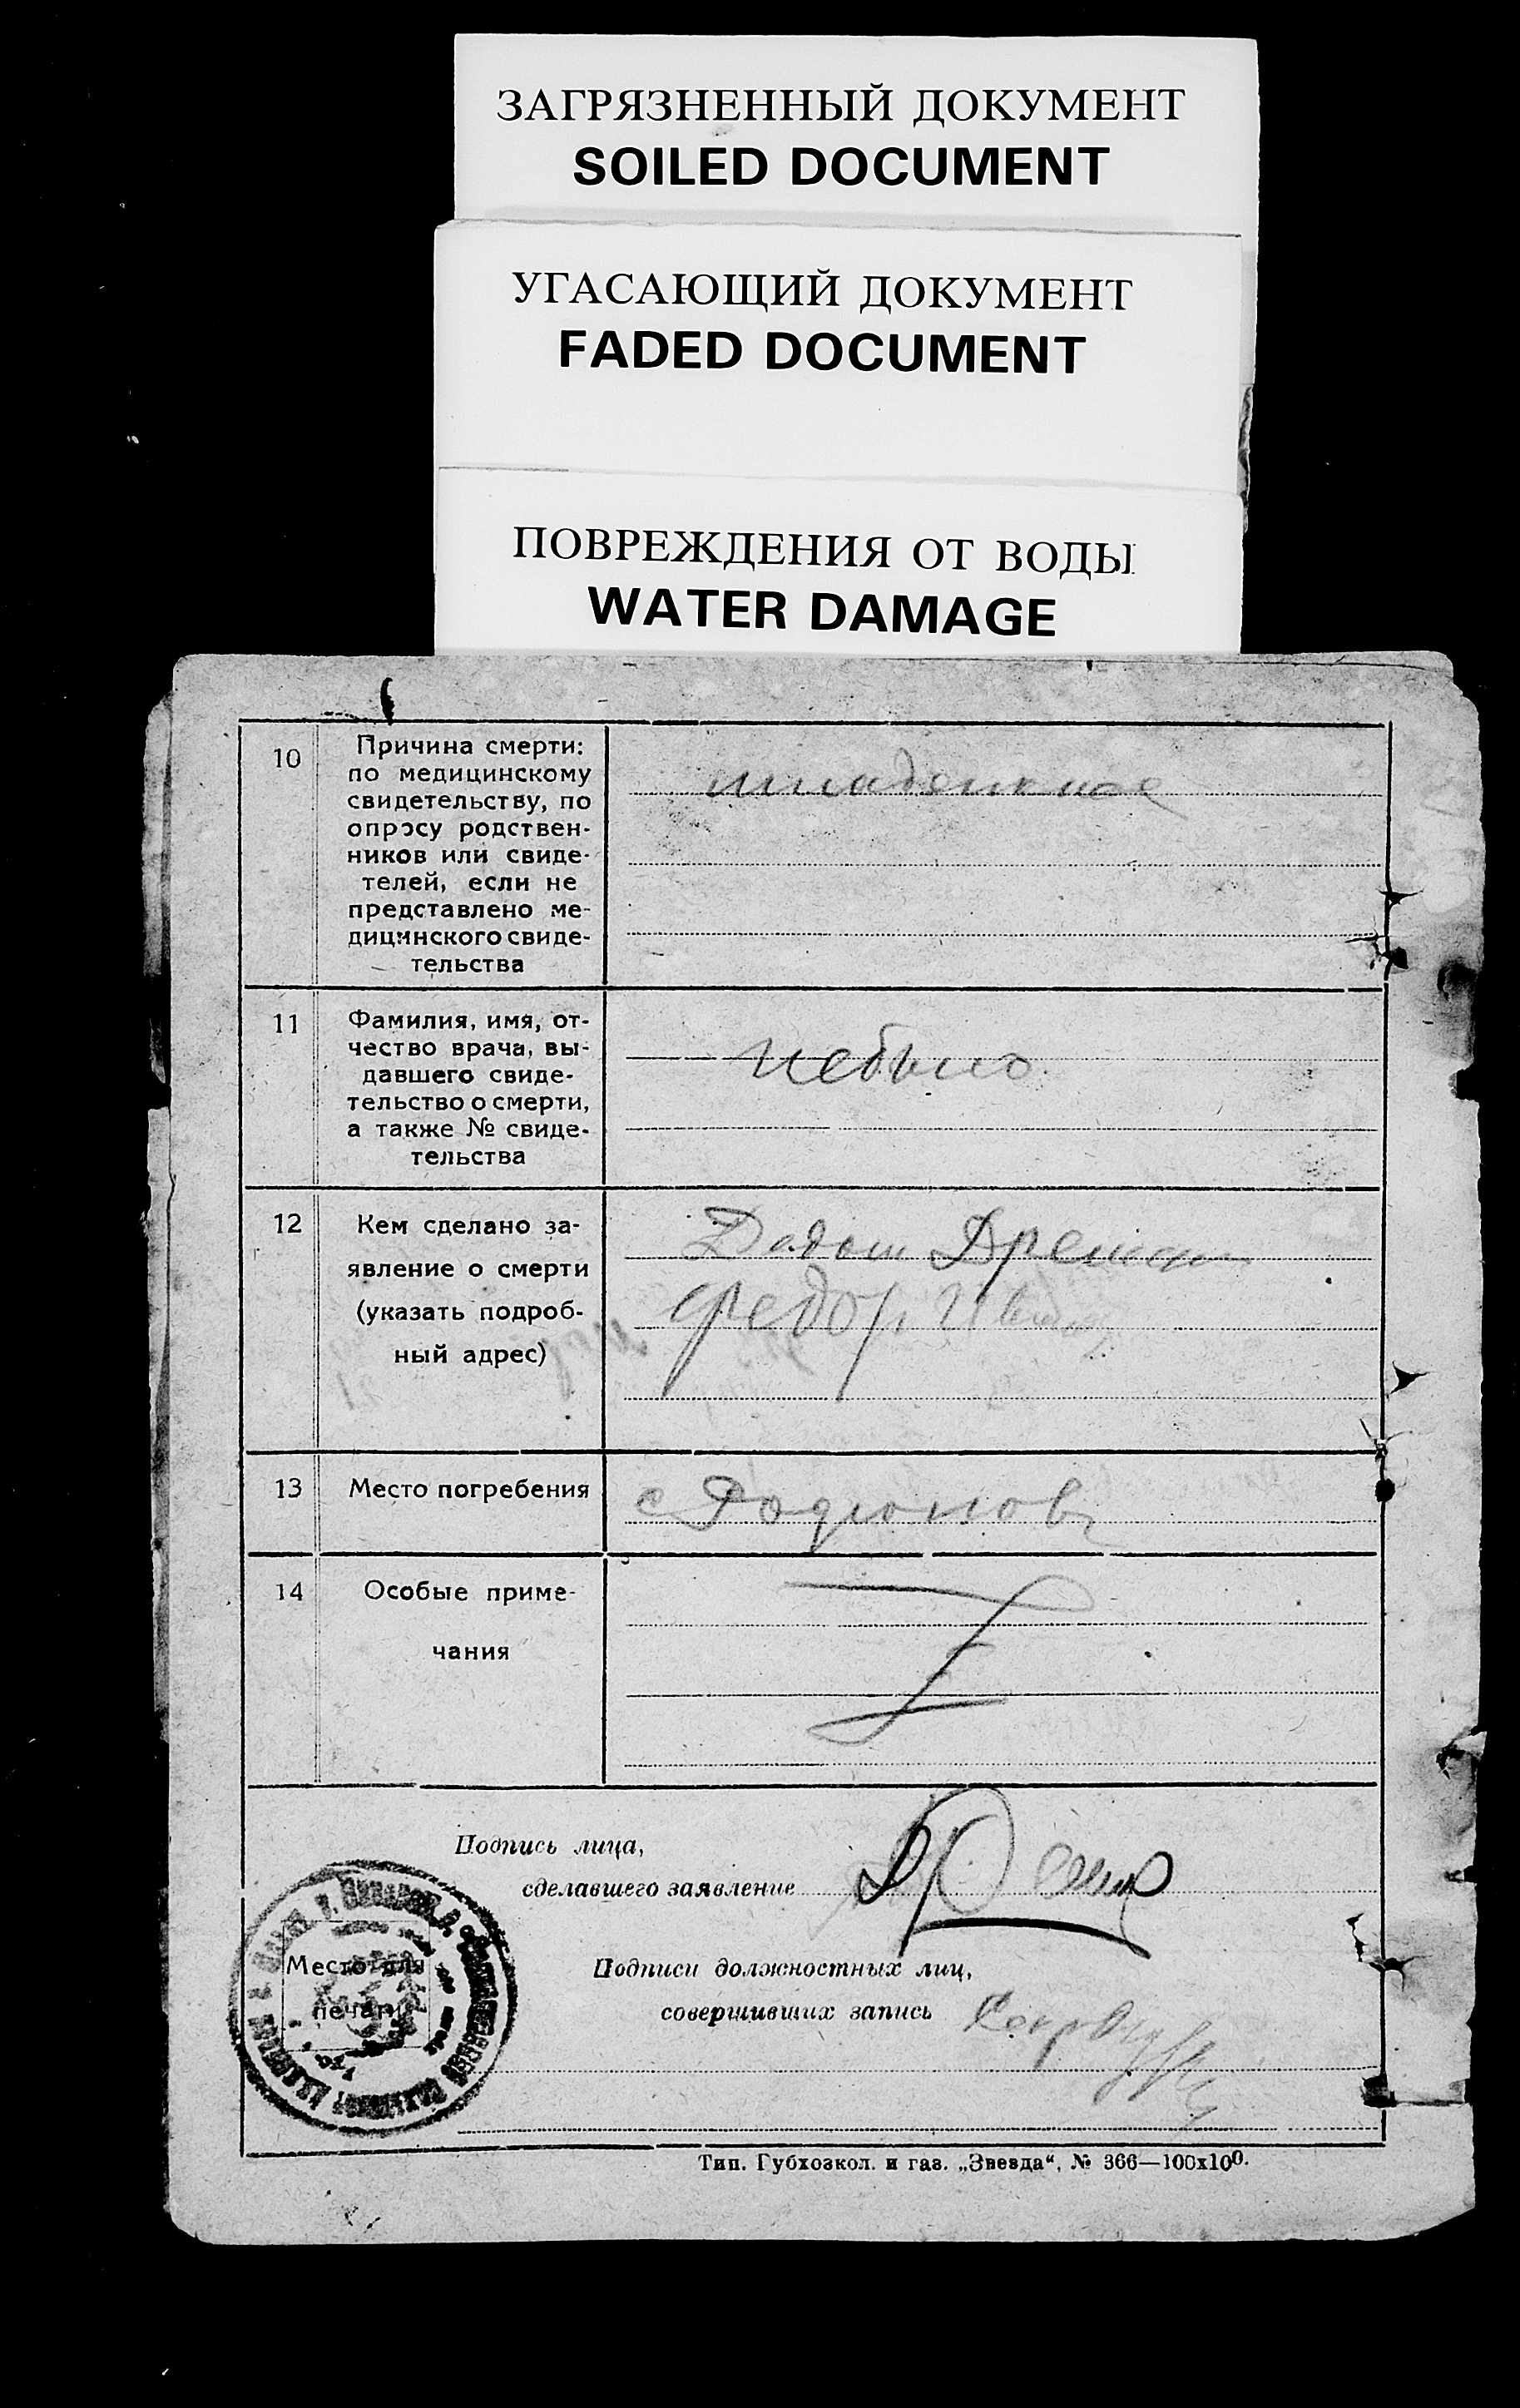 ЗАГРЯЗНЕННЫЙ ДОКУМЕНТ
SOILED DOCUMENT
УГАСАЮЩИЙ ДОКУМЕНТ
FADED DOCUMENT
ПОВРЕЖДЕНИЯ ОТ ВОДЫ
WATER DAMAGE
10
Причина смерти:
по медицинскому
свидетельству, по
опросу родствен-
ников или свиде-
телей, если не
представлено ме-
дицинского свиде-
тельства
младенкное
11
Фамилия, имя, от-
чество врача, вы-
давшего свиде-
тельство о смерти,
а также № свиде-
тельства
небыло
12
Кем сделано за-
явление о смерти
(указать подроб-
ный адрес)
Федор
13
Место погребения
с
14
Особые приме-
чания
Подпись лица,
сделавшего заявление
Место для
печати
Подписи должностных лиц,
совершивших запись
Тип. Губхозкол. и газ. „Звезда“, № 366—100х100.